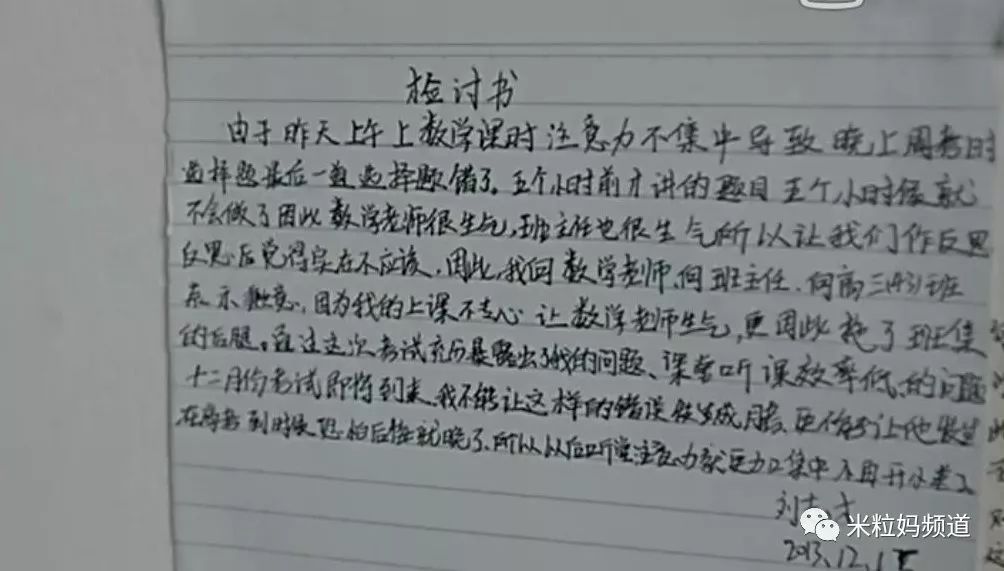 检讨书
由于昨天上午上数学课时注意力不集中导致晚上周考时
选择题最后一道选择题错了。五个小时前才讲的题目五个小时候就
不会做了因此数学老师很生气,班主任也很生气所以让我们作反思
反思后觉得实在不应该,因此,我向数学老师、向班主任、向高三(43)班
表示歉意,因为我的上课不专心让数学老师生气,更因此拖了班集
的后腿。通过这次考试充分暴露出了我的问题、课堂听课效率低的问题
十二月份考试即将到来,我不能让这样的错误发生成月考更不能让他发生
在高考到时候恐怕后悔就晚了,所以以后听课注意力就更加集中不再开小差了
刘
2013.12.1
米粒妈频道